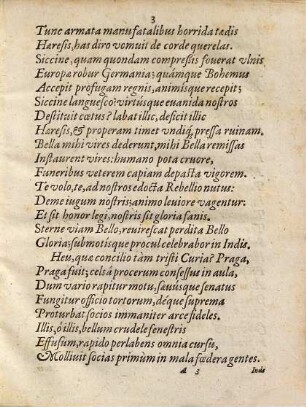 3
Tunc armata manu fatalibus horrida tædis
Hæresis, has diro vomuit de corde querelas.
Siccine, quam quondam compressis fouerat vlnis
Europæ robur Germania; quámque Bohemus
Accepit profugam regnis, animisque recepit;
Siccine languesco? virtúsque euanida nostros
Destituit cœtus? labat illic, deficit illic
Hæresis, & properam timet vndíq; pressa ruinam.
Bella mihi vires dederunt, mihi Bella remissas
Instaurent vires: humano pota cruore,
Funeribus veterem capiam depasta vigorem.
Te volo, te, ad nostros edocta Rebellio nutus:
Deme iugum nostris; animo leuiore vagentur:
Et sit honor legi, nostris sit gloria sanis.
Sterne viam Bello, reuirescat perdita Bello
Gloria; submotísque procul celebrabor in Indis.
Heu, quæ concilio tàm tristi Curia? Praga,
Praga fuit; celsâ procerum consessus in aula,
Dum vario rapitur motu, sæuúsque senatus
Fungitur officio tortorum, déque suprema
Proturbat socios immaniter arce fideles.
Illis, ô illis, bellum crudele fenestris
Effusum, rapido perlabens omnia cursu,
Molliuit socias primùm in mala fœdera gentes.
A 3 Inde